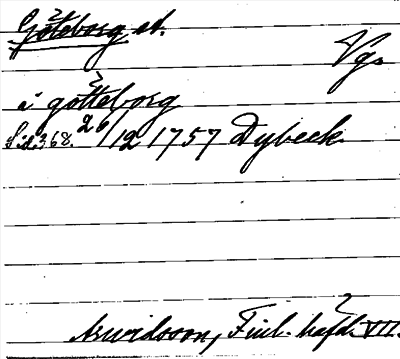 Göteborg st.
Vgs
i götteborg
Sid. 368. 26/12 1757 Dybeck
Arwidsson, Finl. häfd. VII.